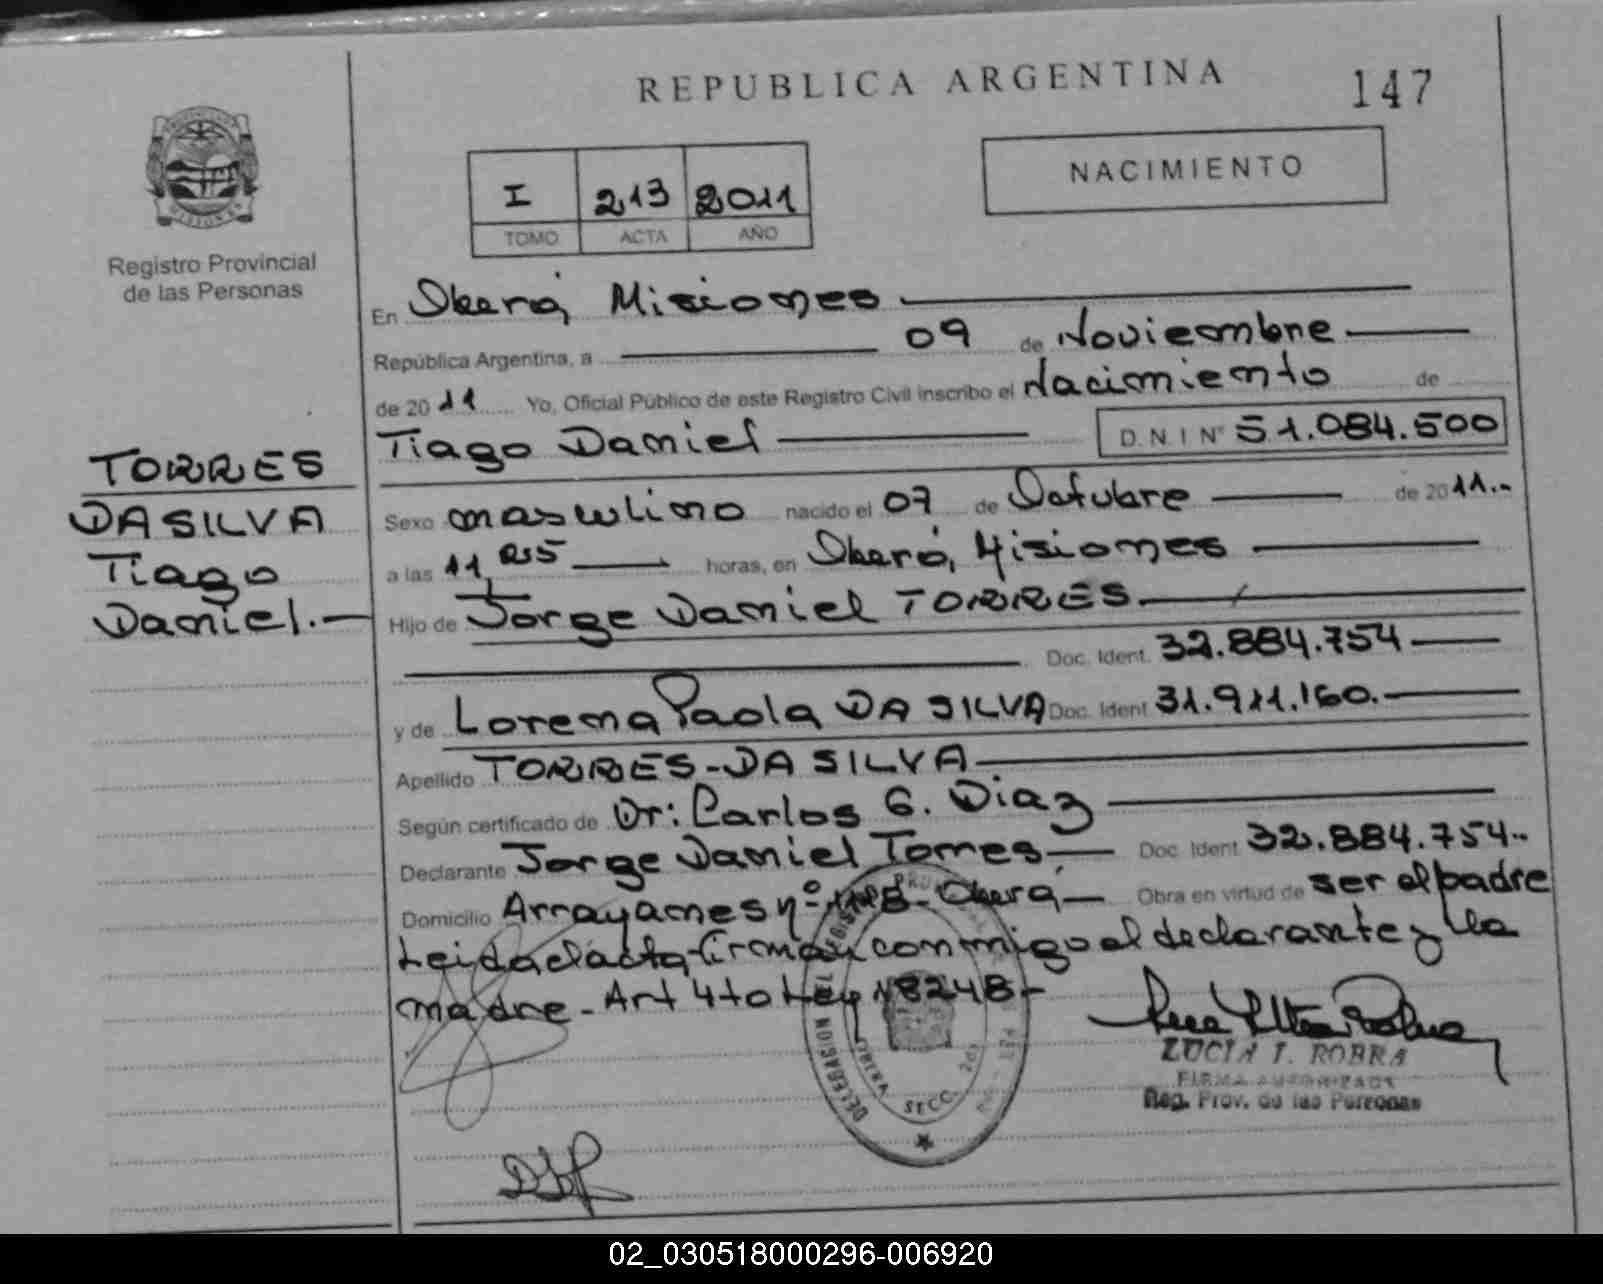 REPUBLICA ARGENTINA
147
NACIMIENTO
I 213 2011
TOMO ACTA AÑO
Registro Provincial
de las Personas
TORRES
DA SILVA
Tiago
Daniel.-
En Oberá, Misiones
República Argentina, a 09 de Noviembre
de 2011 Yo, Oficial Público de este Registro Civil inscribo el Nacimiento de
Tiago Daniel D.N.I Nº 51.084.500
Sexo masculino nacido el 07 de Octubre de 2011.-
a las 11,25 horas, en Oberá, Misiones
Hijo de Jorge Daniel TORRES
Doc. Ident. 32.884.754
y de Lorena Paola DA SILVA Doc. Ident 31.911.160.-
Apellido TORRES-DA SILVA
Según certificado de Dr: Carlos G. Diaz
Declarante Jorge Daniel Torres Doc. Ident 32.884.754..
Domicilio Arrayanes nº Oberá Obra en virtud de ser el padre
Leida el acta, firman conmigo el declarante y la
madre - Art 4to Ley 18248-
DELEGACION
SECC. 2da
LUCIA I. ROBRA
FIRMA AUTORIZADA
Reg. Prov. de las Personas
02_030518000296-006920